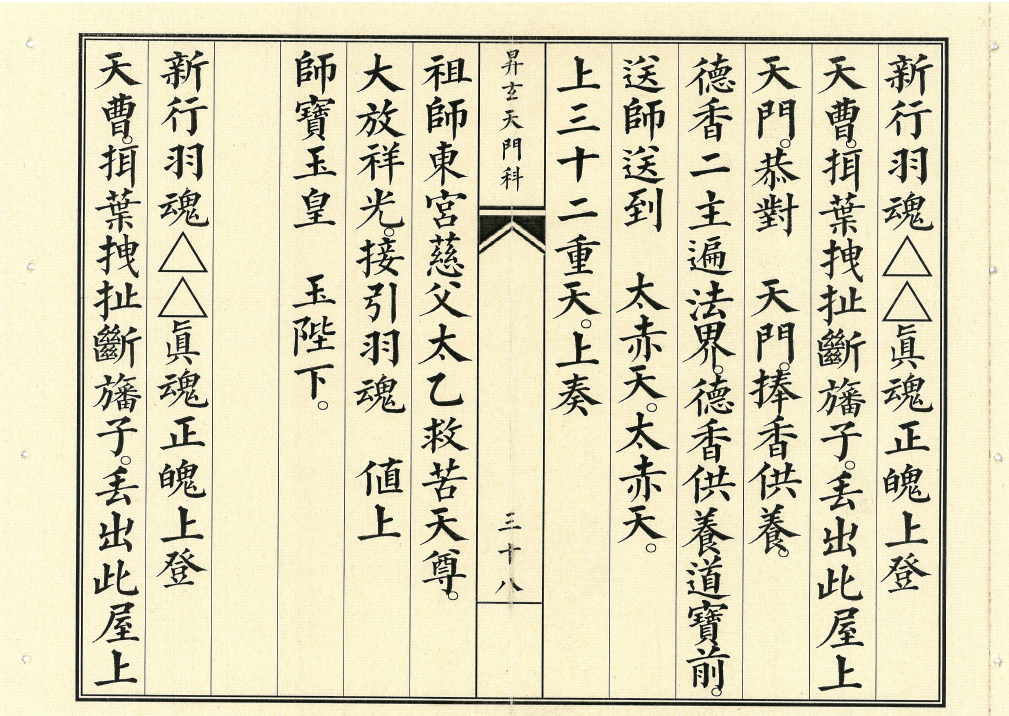 新行羽魂△△眞魂正魄上登
天曹。挕葉拽扯斷旛子。丢出此屋上
天門。恭對　天門。捧香供養。
德香二主遍法界。德香供養道寶前。
送師送到　太赤天。太赤天。
上三十二重天。上奏
昇玄天門科　三十八
祖師東宮慈父太乙救苦天尊。
大放祥光。接引羽魂　値上
師寶玉皇　玉陛下。
新行羽魂△△眞魂正魄上登
天曹。挕葉拽扯斷旛子。丢出此屋上